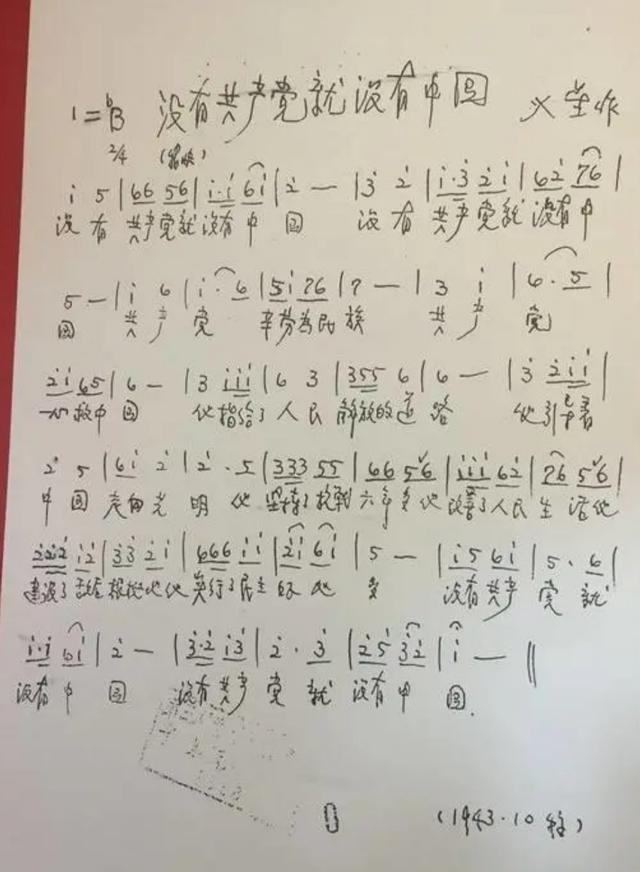 1=ᵇB 没有共产党就没有中国 火星作
2/4
i 5 | 66 56 | i·i 6i | 2 — | 3 2 | i·3 2i | 62 76 |
没有共产党就没有中国 没有共产党就没有中
5 — | i 6 | i·6 | 5i 76 | 7 — | 3 i | 6·5 |
国 共产党 辛劳为民族 共产党
2i 65 | 6 — | 3 iii | 6 3 | 355 6 | 6 — | 3 2ii |
一心救中国 他指给了人民解放的道路 他引导着
2 5 | 6i 2 | 2·5 | 333 55 | 66 56 | iii 62 | 76 56 |
中国走向光明 他坚持了抗战六年多他改善了人民生活他
2222 i2 | 33 2i | 666 ii | 2i 6i | 5 — | i5 6i | 5·6 |
建设了敌后根据地他实行了民主好处多 没有共产党就
i·i 6i | 2 — | 3·2 i3 | 2·3 | 25 32 | i — ‖
没有中国 没有共产党就没有中国.
(1943·10 稿)